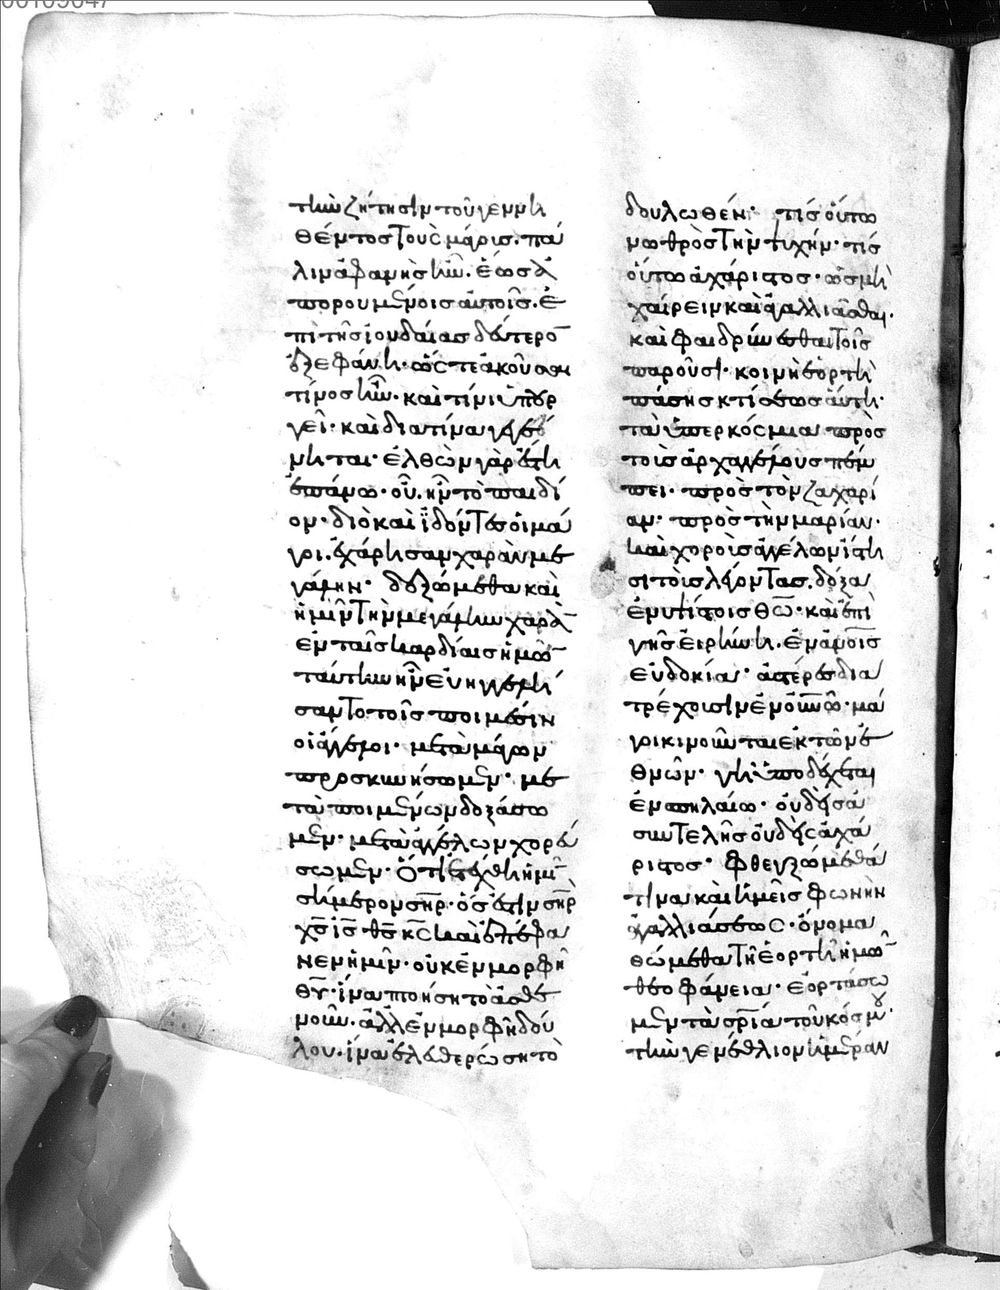 τὴν ζήτησιν τοῦ γεννη
θέντος τοὺς μάγισ. πά
λιν ἀφανὴς ἦν. ἕωσ ἀ
πορουμένοις αὐτοῖς. ἐ
πὶ τῆς ἰουδαίας δεύτερο
ἐξεφάνη. ὥστε ἀκοῦσαι
τίνος ἦν. καὶ τίνι ὑπουρ
γεῖ. καὶ διατίνα γεγέ
νηται. ἐλθὼν γὰρ ἔστη
ἐπάνω. οὗ ἦν τὸ παιδί
ον. διὸ καὶ ἰδόντες οἱ μά
γοι. ἐχάρησαν χαρὰν με
γάλην. δεξώμεθα καὶ
ἡμῖν τὴν μεγάλην χαρὰ
ἐν ταῖς καρδίαις ἡμῶ
ταύτην ἣν εὐηγγελί
σαντο τοῖς ποιμέσιν
οἱ ἄγγελοι. μετὰ μάγων
προσκυνήσωμεν. με
τὰ ποιμένων δοξάσω
μεν. μετὰ ἀγγέλων χορεύ
σωμεν. ὅτι ἐτέχθη ἡμῖ
σήμερον σηρ. ὅς ἐστιν σηρ
χς ις θς κς καὶ ἐπέφα
νεν ἡμῖν. οὐκ ἐν μορφῇ
θυ. ἵνα πτοήση τὸ ἀσθε
νοῦν. ἀλλ' ἐν μορφῇ δού
λου. ἵνα ἐλευθερώση τὸ
δουλωθέν. τίς οὕτω
νωθρὸς τὴν ψυχήν. τίς
οὕτω ἀχάριστος. ὡς μὴ
χαίρειν καὶ ἀγαλλιᾶσθαι.
καὶ φαιδρύνεσθαι τοῖς
παροῦσι. κοινὴ ἑορτὴ
πάσης κτίσεως αὕτη.
τὰ ὑπερκόσμια πρὸς
τοὺς ἀρχαγγέλους πέμ
πει. πρὸς τὸν ζαχαρί
αν. πρὸς τὴν μαρίαν.
καὶ χοροὺς ἀγγέλων ἵστη
σι τοὺς λέγοντας. δόξα
ἐν ὑψίστοις θω. καὶ ἐπὶ
γῆς εἰρήνη. ἐν ἀνοις
εὐδοκία. ἀστέρες δια
τρέχουσιν ἐν οὐνω. μά
γοι κινοῦνται ἐκ τῶν ἐ
θνῶν. γῆ ὑποδέχεται
ἐν σπηλαίω. οὐδεὶς ἀ
συντελὴς οὐδεὶς ἀχά
ριστος. φθεγξώμεθά
τινα καὶ ἡμεῖς φωνὴν
ἀγαλλιάσεως. ὄνομα
θώμεθα τῇ ἑορτῇ ἡμῶ
θεοφάνεια. ἑορτάσω
μεν τὰ σρία τοῦ κόσμου.
τὴν γενέθλιον ἡμέραν